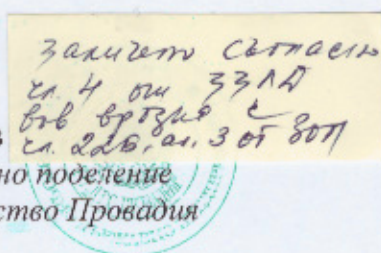 заличено съгласно
чл. 4 от ЗЗЛД
във връзка с
чл. 22б, ал. 3 от ЗОП
но поделение
ство Провадия